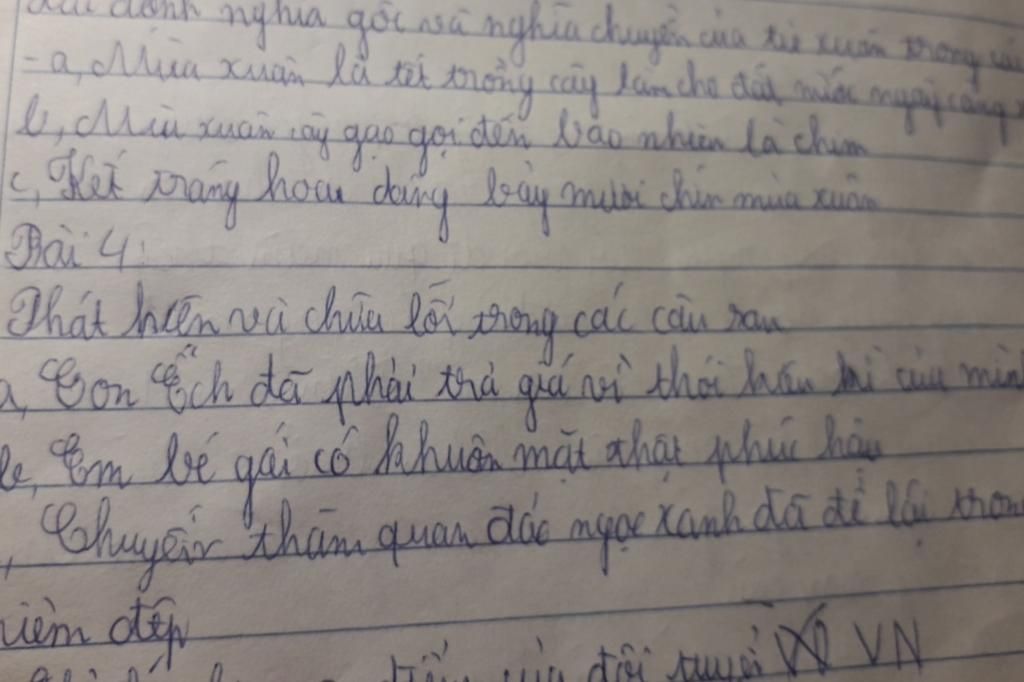 định nghĩa gốc và nghĩa chuyển của từ xuân trong các
- a, Mùa xuân là tết trồng cây làm cho đất nước ngày càng x
b, Mùa xuân cây gạo gọi đến bao nhiên là chim
c, Kết tràng hoa dâng bảy mươi chín mùa xuân
Bài 4:
Phát hiện và chữa lỗi trong các câu sau
a, Con Ếch đã phải trả giá vì thói hấu hĩ của mình
b, Em bé gái có khuôn mặt thật phúc hậu
, Chuyến thăm quan đảo ngọc xanh đã để lại tron
niệm đẹp
của đội tuyển VN